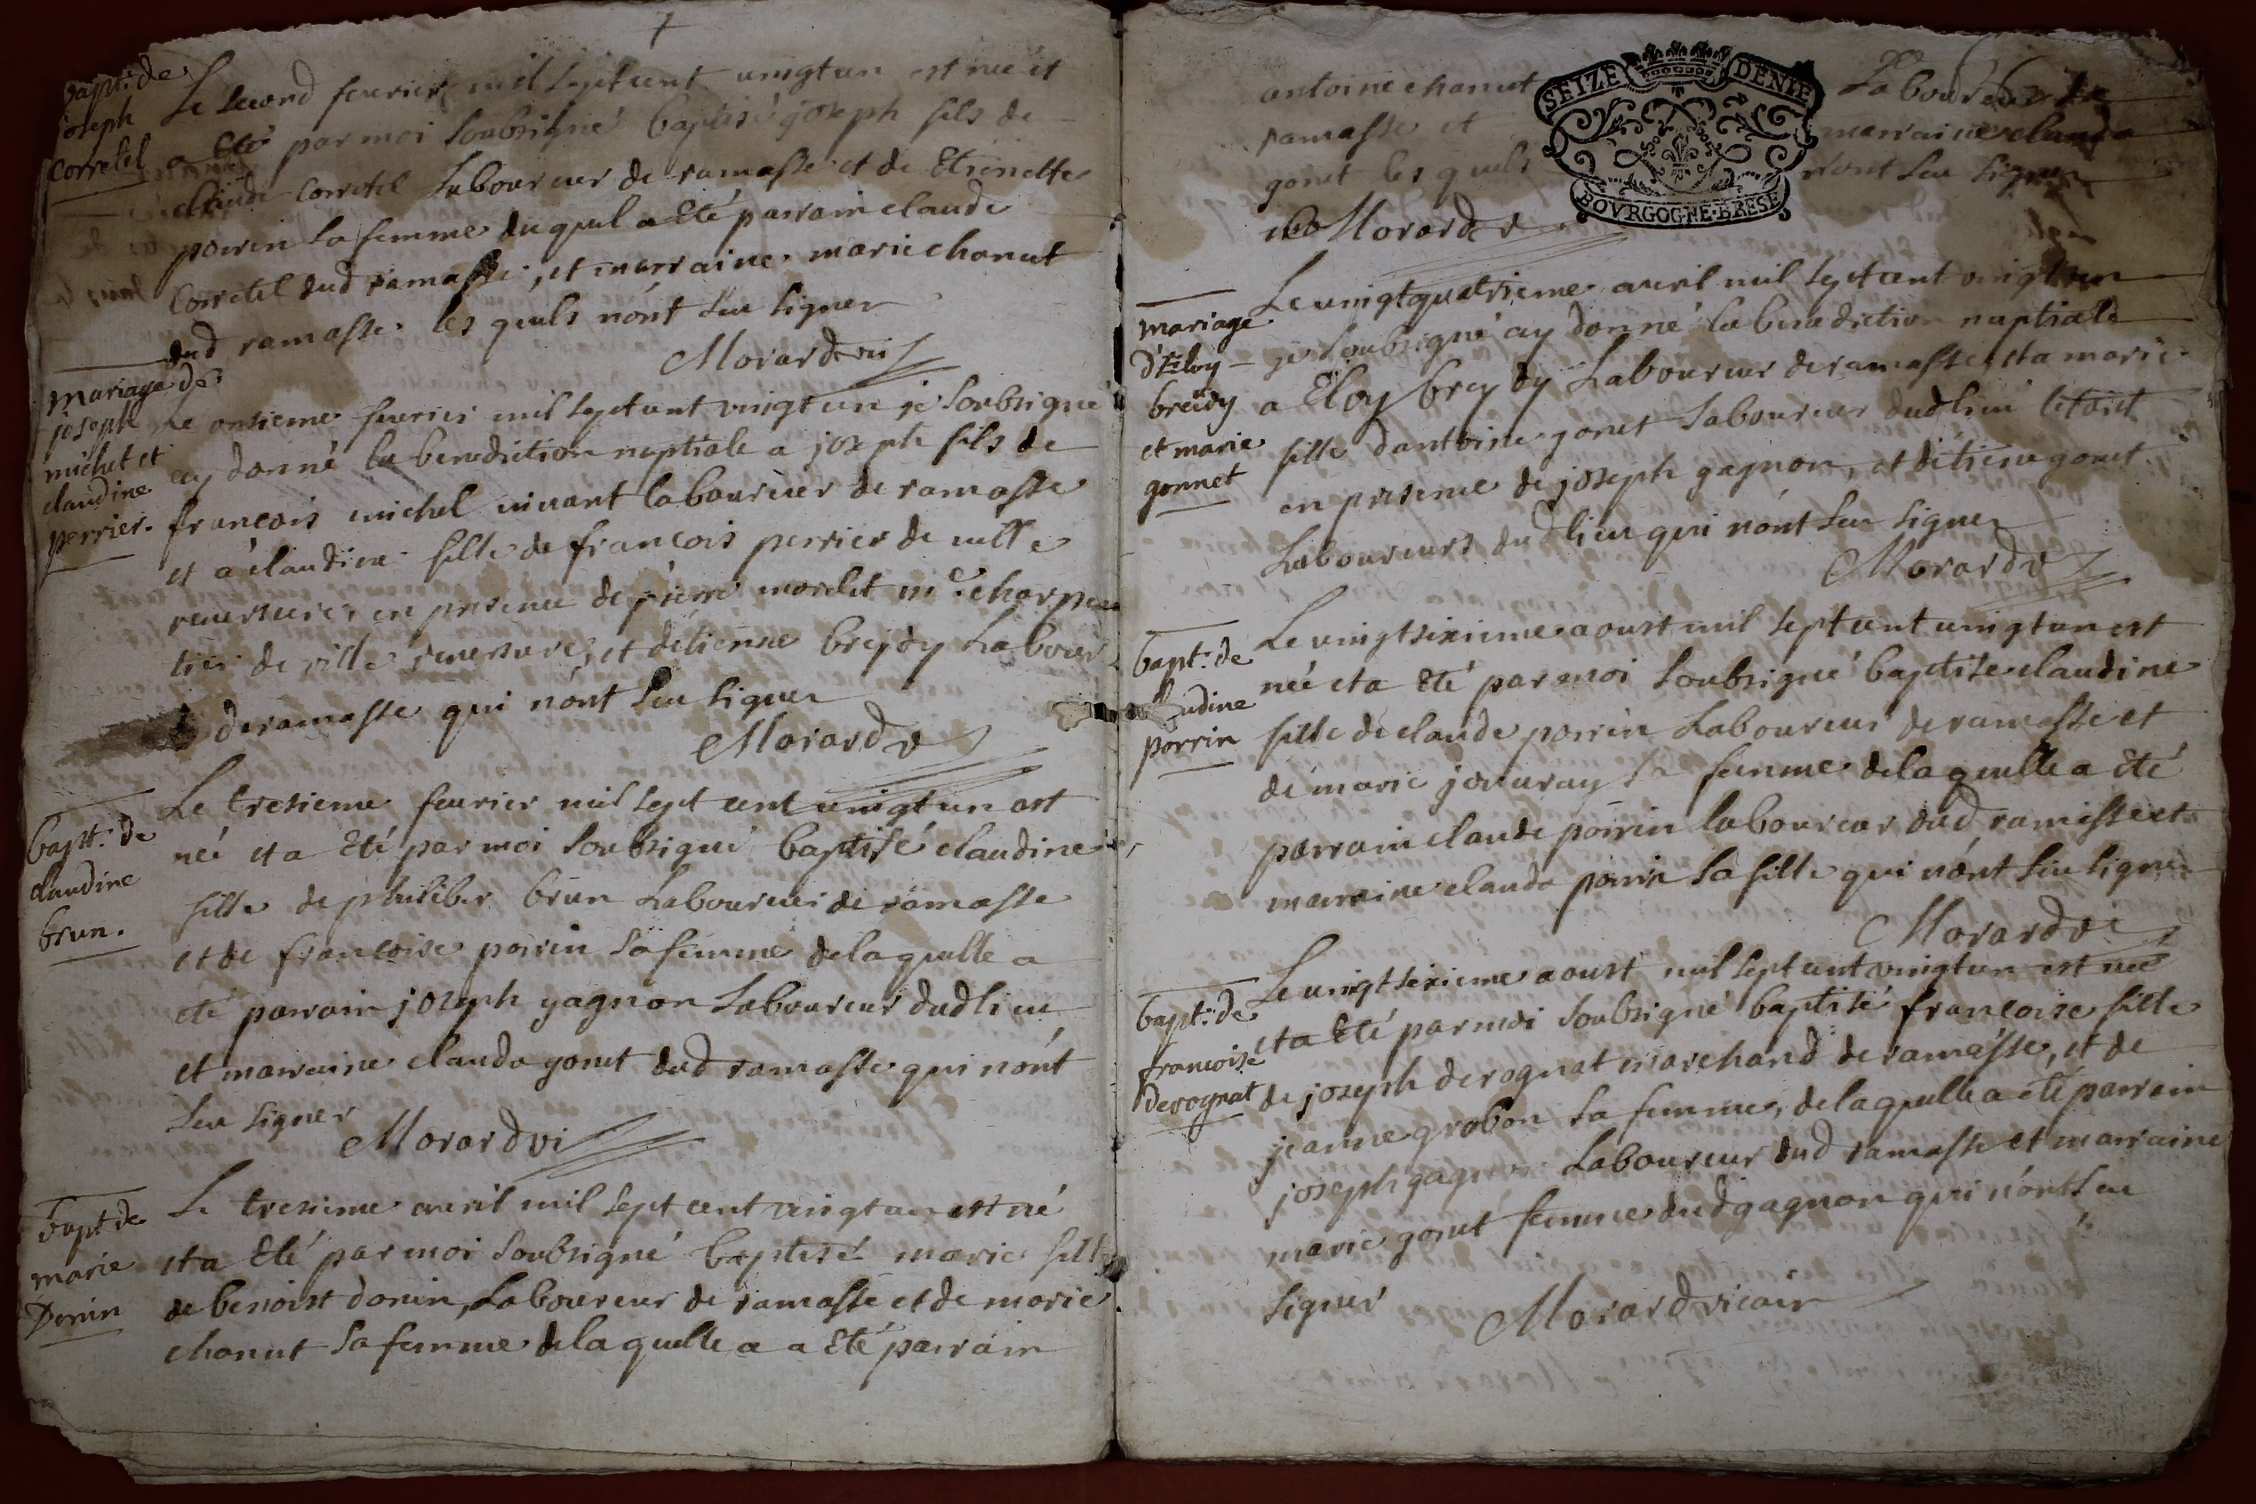 bapt: de
joseph
Corretel
Le second feurier mil sept cent uingt un est né et
a Eté par moi soubsigné baptisé joseph fils de
claude Corretel Laboureur de ramasse et de Etienette
poirin sa femme duquel a Eté parrain claude
Corretel dud ramasse, et marraine marie chanut
dud ramasse les quels nónt sçu signer
Morard vi
mariage de
joseph
michel et
claudine
perrier.
Le onsieme feurier mil sept cent vingt un je soubsigné
ay donné la benediction nuptiale a joseph fils de
francois michel uiuant laboureur de ramasse
et a claudine fille de francois perrier de uille
reuersure, en presence de pierre morelet mre charpen
tier de ville reuersure, et détienne breydy Labour
de ramasse qui nónt sçu signer
Morard v
bapt: de
claudine
brun.
Le tresieme feurier mil sept cent uingt un est
neé et a Eté par moi soubsigné baptisé claudine
fille de philiber brun Laboureur de ramasse
et de francoise poirin sa femme de laquelle a
eté parrain joseph gagnon Laboureur dud lieu
et marraine clauda gonet dud ramasse qui nónt
sçu signer
Morard vi
bapt de
marie
Donin
Le tresieme auril mil sept cent vingt un est né
et a Eté par moi soubsigné baptisé marie fille
de benoist donin, Laboureur de ramasse et de marie
chanut sa femme de laquelle a a Eté parrain
SEIZE DENIE
BOVRGOGNE·BRESE
antoine chanut Laboureur de
ramasse et marraine clauda
gonet les quels nónt sçu signer
Morard v
mariage
d'Eloy
breidy
et marie
gonnet
Le uingtquatrieme auril mil sept cent vingt un
je soubsigné ay donné la benediction nuptiale
a Eloy breydy Laboureur de ramasse, et a marie
fille dantoine gonet laboureur dud lieu le tout
en presence de joseph gagnon, et détiene gonet
Laboureurs dud lieu qui nónt sçu signer
Morard v
bapt: de
claudine
porrin
Le uingtsixieme aoust mil sept cent uingt un est
neé et a Eté par moi soubsigné baptisé claudine
fille de claude poirin Laboureur de ramasse et
de marie jouuray sa femme de laquelle a Eté
parrain claude poirin laboureur dud ramasse et
marraine clauda poirin sa fille qui nónt sçu signer
Morard vi
bapt: de
francoise
derognat
Le uingtsixieme aoust mil sept cent vingt un est neé
et a Eté par moi soubsigné baptisé francoise fille
de joseph derognat marchand de ramasse, et de
jeanne grobon sa femme, de laquelle a eté parrain
joseph gagnon Laboureur dud ramasse et marraine
marie gonet femme dud gagnon qui nónt sçu
signer
Morard vicair